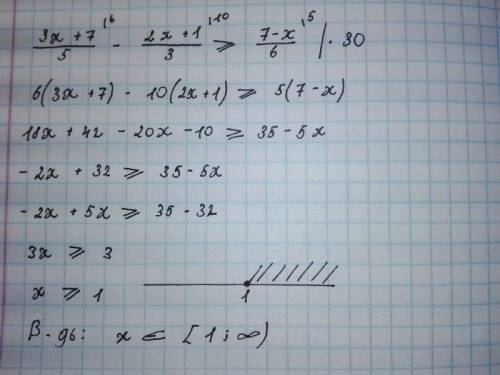 (3x+7)/5 ⁽⁶ - (2x+1)/3 ⁽¹⁰ ⩾ (7-x)/6 ⁽⁵ | · 30
6(3x+7) - 10(2x+1) ⩾ 5(7-x)
18x + 42 - 20x - 10 ⩾ 35 - 5x
-2x + 32 ⩾ 35 - 5x
-2x + 5x ⩾ 35 - 32
3x ⩾ 3
x ⩾ 1
1
В-дь: x ∈ [1; ∞)